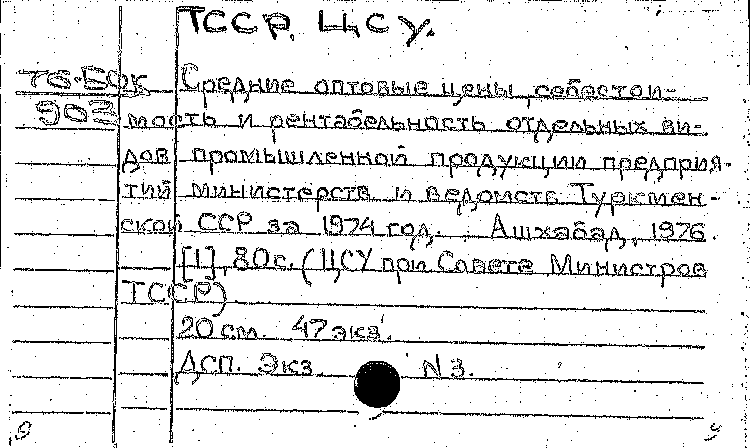 ТССР. ЦСУ.
76-БОК Средние оптовые цены, себестои-
903 мость и рентабельность отдельных ви-
дов промышленной продукции предприя-
тий министерств и ведомств Туркмен-
ской ССР за 1974 год. Ашхабад, 1976.
[1], 80с. (ЦСУ при Совете Министров
ТССР)
20 см. 47 экз.
ДСП. Экз. N 3.